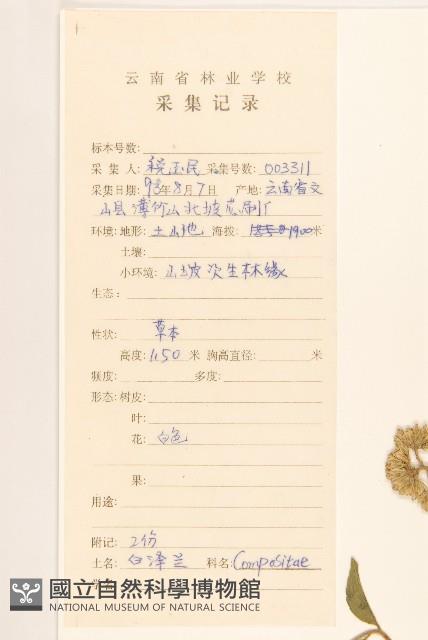 云南省林业学校
采集记录
标本号数:
采集人: 税玉民 采集号数: 003311
采集日期: 93年8月7日 产地: 云南省文
山县薄竹山北坡
环境: 地形: 土山地 海拔: 1900米
土壤:
小环境: 山坡次生林缘
生态:
性状: 草本
高度: 1.50 米 胸高直径: 米
频度: 多度:
形态: 树皮:
叶:
花: 白色
果:
用途:
附记: 2份
土名: 白泽兰 科名: Compositae
國立自然科學博物館
NATIONAL MUSEUM OF NATURAL SCIENCE